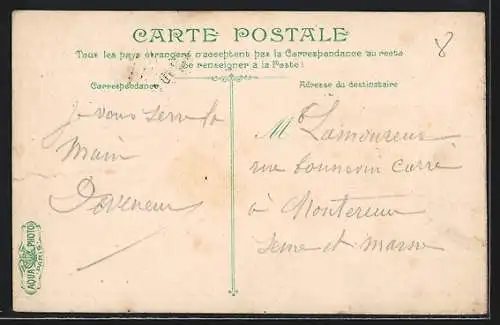 CARTE POSTALE
8
Tous les pays étrangers n'acceptent pas la Correspondance au recto
(Se renseigner à la Poste)
Correspondance
Adresse du destinataire
Je vous serre la
main
Mr Lamoureux
rue Carré
à Montereau
Seine et Marne
AQUA PHOTO
PARIS